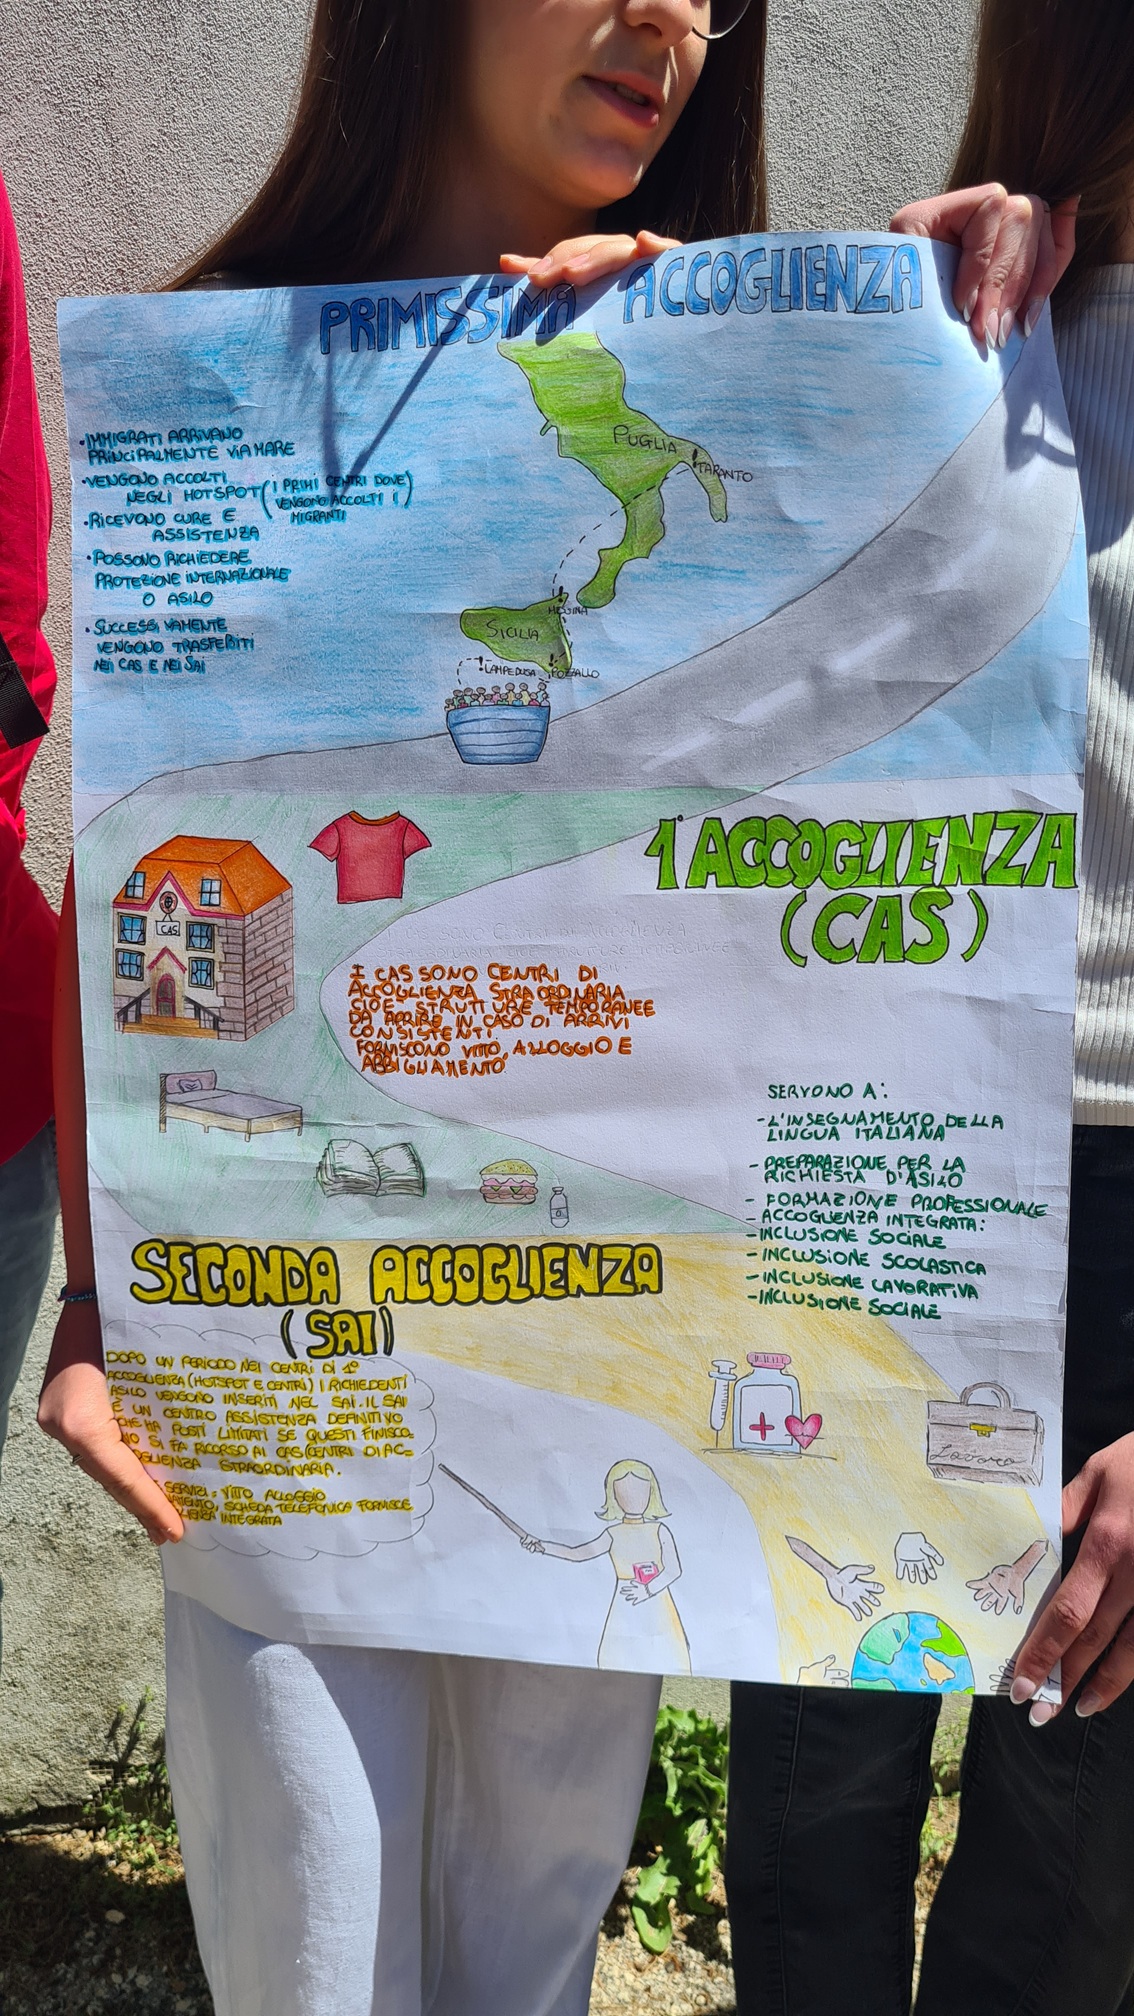 PRIMISSIMA ACCOGLIENZA
• IMMIGRATI ARRIVANO
PRINCIPALMENTE VIA MARE
• VENGONO ACCOLTI
NEGLI HOTSPOT (I PRIMI CENTRI DOVE
VENGONO ACCOLTI I
MIGRANTI)
• RICEVONO CURE E
ASSISTENZA
• POSSONO RICHIEDERE
PROTEZIONE INTERNAZIONALE
O ASILO
• SUCCESSIVAMENTE
VENGONO TRASFERITI
NEI CAS E NEI SAI
PUGLIA
TARANTO
MESSINA
SICILIA
LAMPEDUSA
POZZALLO
1° ACCOGLIENZA
(CAS)
CAS
I CAS SONO CENTRI DI
ACCOGLIENZA STRAORDINARIA
CIOE' STRUTTURE TEMPORANEE
DA APRIRE IN CASO DI ARRIVI
CONSISTENTI.
FORNISCONO VITTO, ALLOGGIO E
ABBIGLIAMENTO
SERVONO A:
- L'INSEGNAMENTO DELLA
LINGUA ITALIANA
- PREPARAZIONE PER LA
RICHIESTA D'ASILO
- FORMAZIONE PROFESSIONALE
- ACCOGLIENZA INTEGRATA:
- INCLUSIONE SOCIALE
- INCLUSIONE SCOLASTICA
- INCLUSIONE LAVORATIVA
- INCLUSIONE SOCIALE
SECONDA ACCOGLIENZA
(SAI)
DOPO UN PERIODO NEI CENTRI DI 1°
ACCOGLIENZA (HOTSPOT E CENTRI) I RICHIEDENTI
ASILO VENGONO INSERITI NEL SAI. IL SAI
E UN CENTRO ASSISTENZA DEFINITIVO
CHE HA POSTI LIMITATI SE QUESTI FINISCO-
NO SI FA RICORSO AI CAS (CENTRI DI AC-
COGLIENZA STRAORDINARIA.
SERVIZI: VITTO ALLOGGIO
SCHEDA TELEFONICA FORNISCE
INTEGRATA
Lavoro